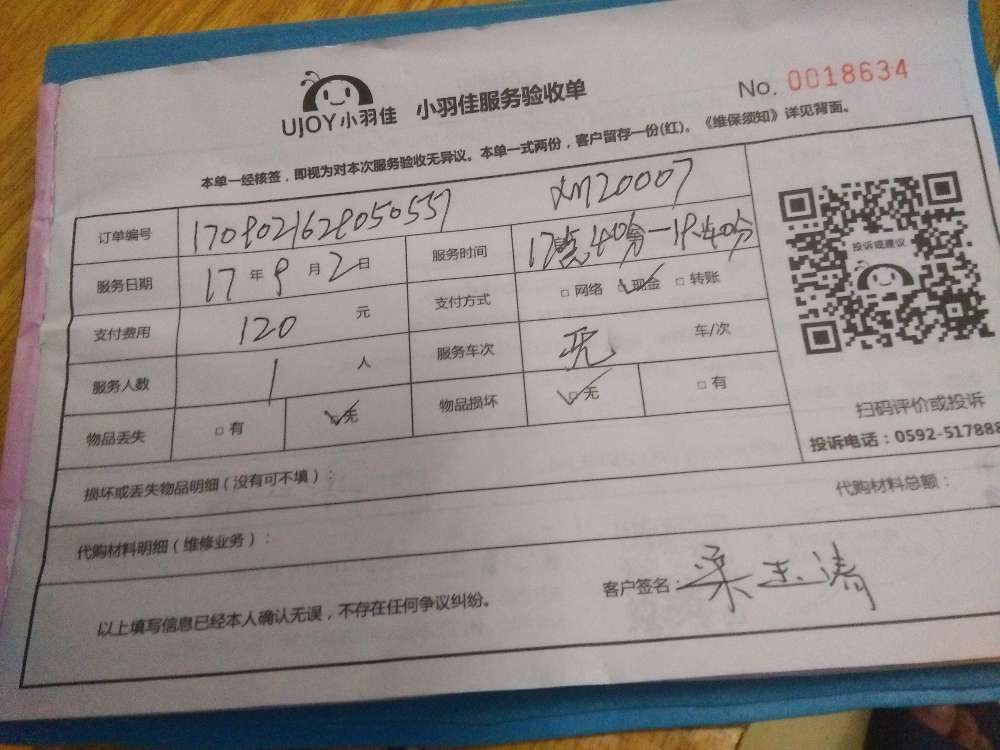 UJOY小羽佳 小羽佳服务验收单 No. 0018634
本单一经核签，即视为对本次服务验收无异议。本单一式两份，客户留存一份(红)。《维保须知》详见背面。
订单编号 1709021629050557 XM20007
服务日期 17 年 9 月 2 日 服务时间 17点40分—19.40分
支付费用 120 元 支付方式 □ 网络 □ 现金 □ 转账
服务人数 1 人 服务车次 无 车/次
物品丢失 □ 有 □ 无 物品损坏 □ 无 □ 有
投诉或建议
扫码评价或投诉
投诉电话：0592-517888
损坏或丢失物品明细（没有可不填）：
代购材料明细（维修业务）： 代购材料总额：
以上填写信息已经本人确认无误，不存在任何争议纠纷。 客户签名：梁玉涛